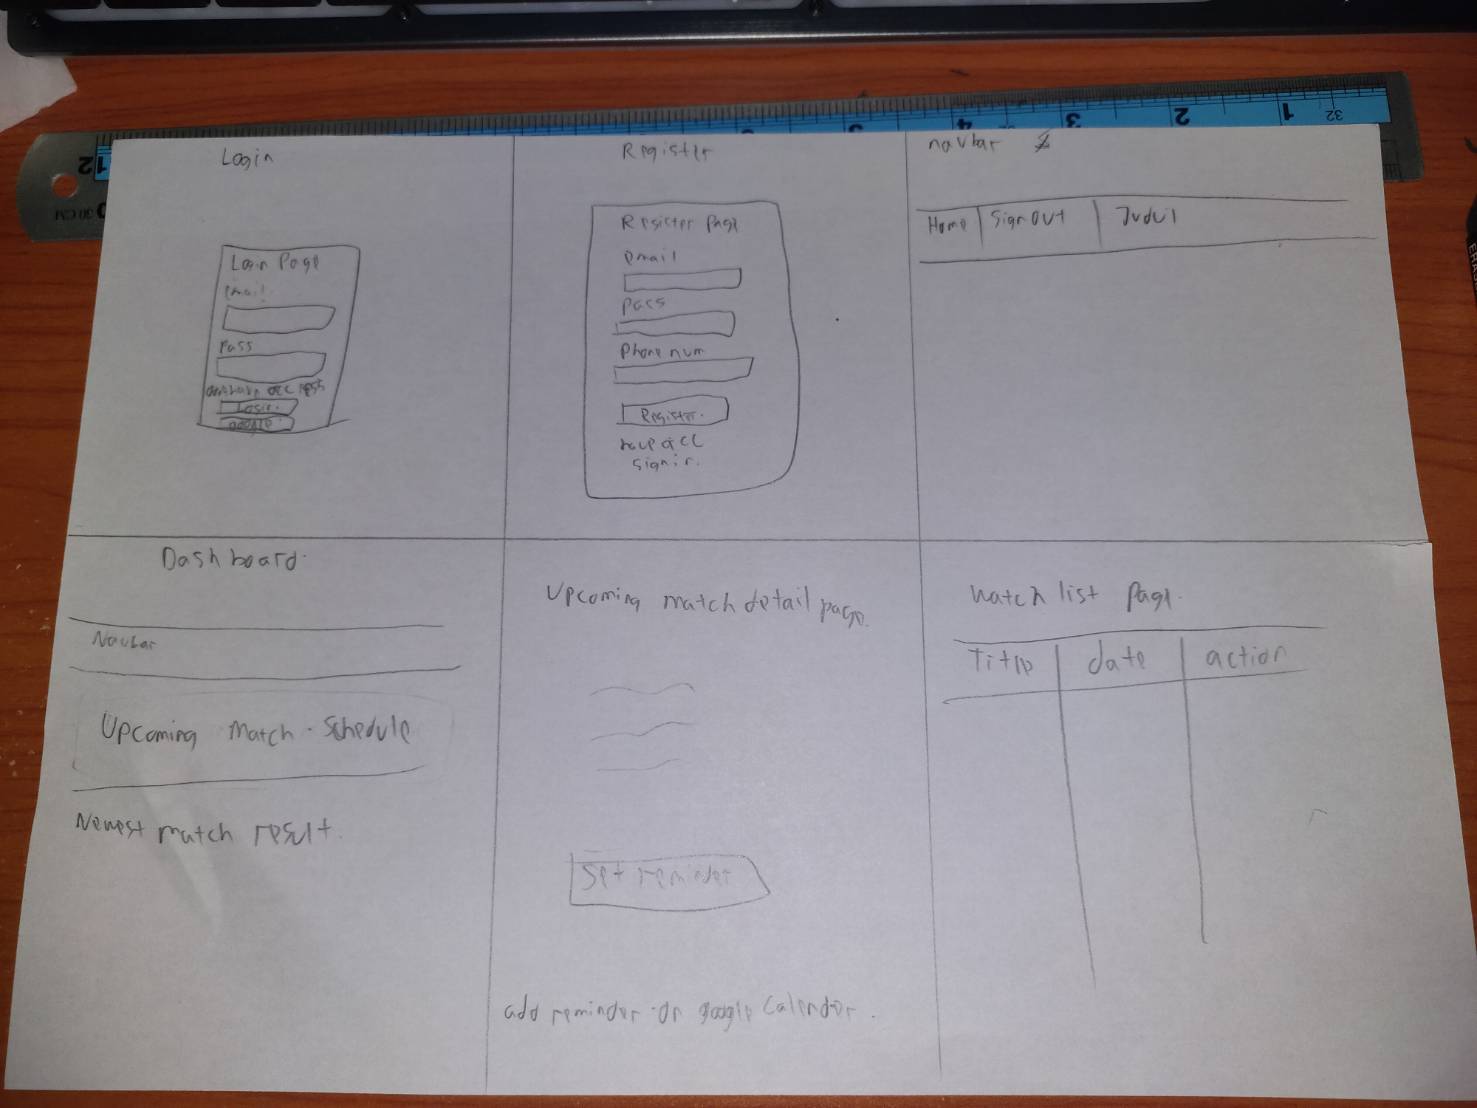 Login
Login Page
email
Pass
Login
google
Register
Register page
email
pass
Phone num
Register.
have acc
sign in.
navbar
Home
Sign Out
Judul
Dashboard.
Navbar
Upcoming Match - Schedule
Newest match result.
Upcoming match detail page.
Set reminder
add reminder on google Calendar.
Watch list Page.
Title
date
action
4
3
2
1
32
12
30 CM